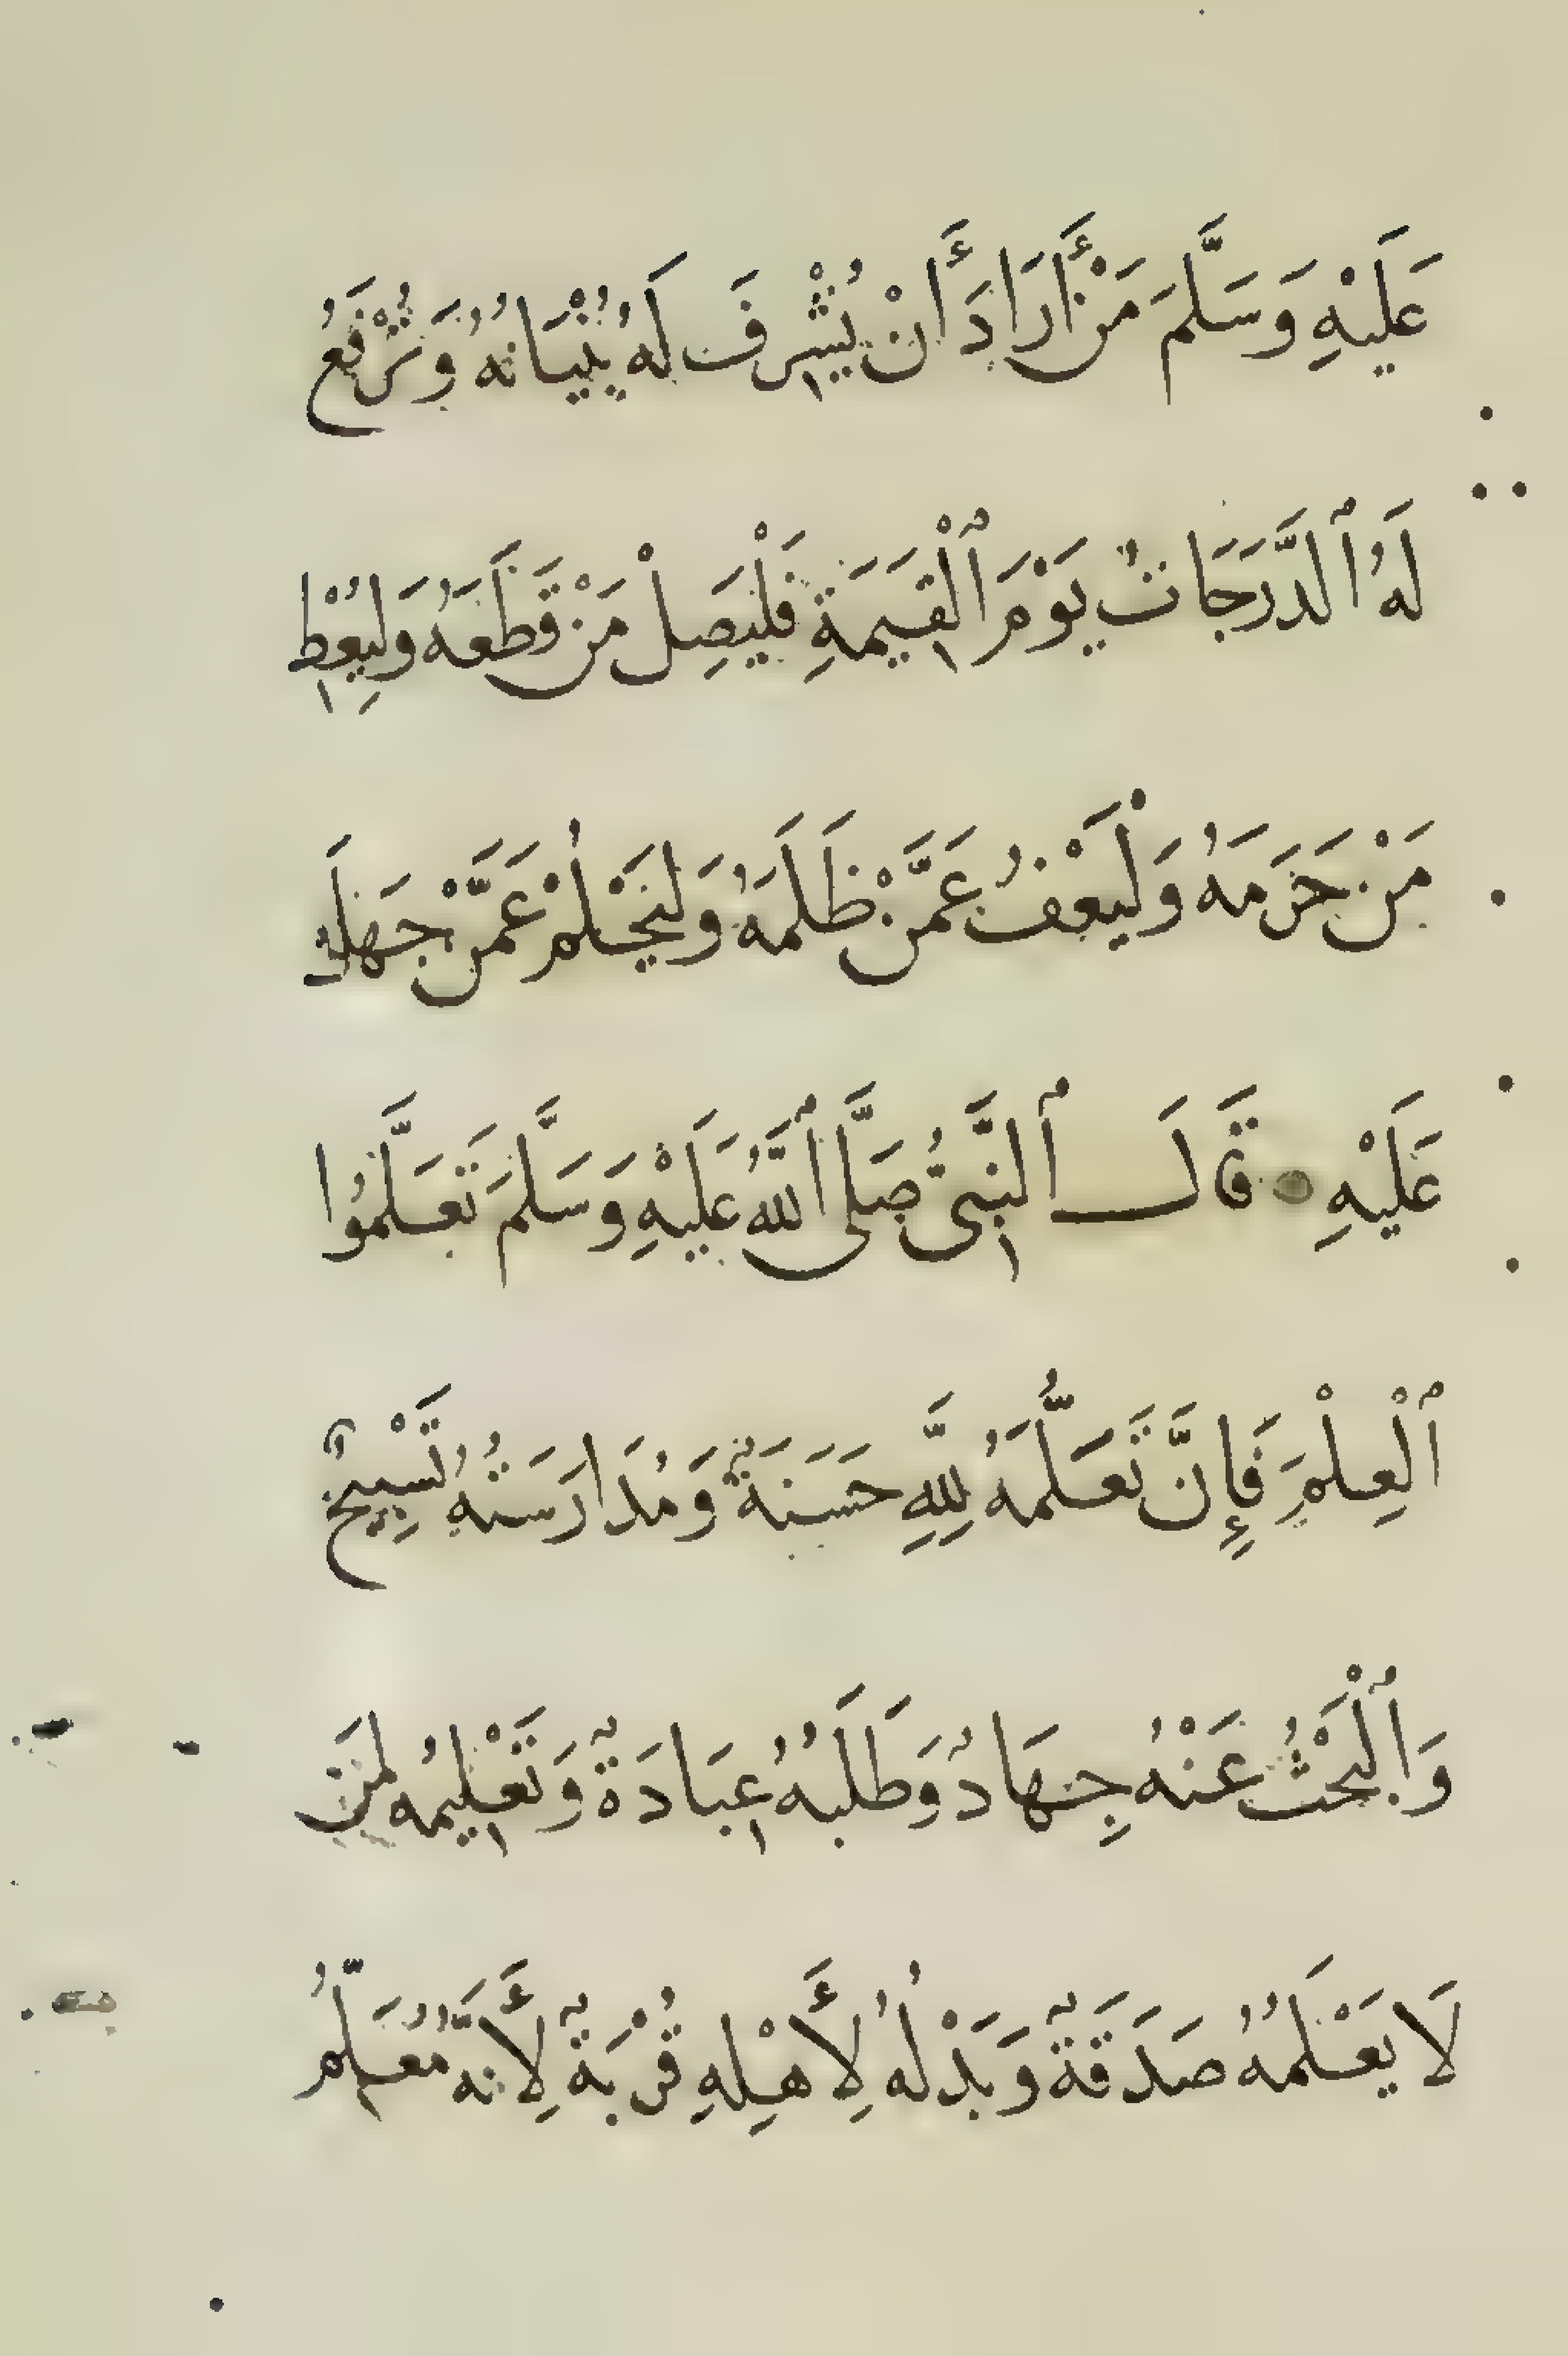 عَلَيْهِ وَسَلَّمَ مَنْ أَرَادَ أَنْ يُشْرِفَ لَهُ بُنْيَانُهُ وَتُرْفَعُ
لَهُ ٱلدَّرَجَاتُ يَوْمَ ٱلْقِيَمَةِ فَلْيَصِلْ مَنْ قَطَعَهُ وَلِيُعْطِ
مَنْ حَرَمَهُ وَلْيَعْفُ عَمَّنْ ظَلَمَهُ وَلْيَحْلُمْ عَمَّنْ جَهِلَ
عَلَيْهِ قَالَ ٱلنَّبِىُّ صَلَّى ٱللَّهُ عَلَيْهِ وَسَلَّمَ تَعَلَّمُوا
ٱلْعِلْمَ فَإِنَّ تَعَلُّمَهُ لِلَّهِ حَسَنَةٌ وَمُدَارَسَتُهُ تَسْبِيحٌ
وَٱلْبَحْثُ عَنْهُ جِهَادٌ وَطَلَبُهُ عِبَادَةٌ وَتَعْلِيمُهُ لِمَنْ
لَا يَعْلَمُهُ صَدَقَةٌ وَبَذْلُهُ لِأَهْلِهِ قُرْبَةٌ لِأَنَّهُ مُعَلِّمُ